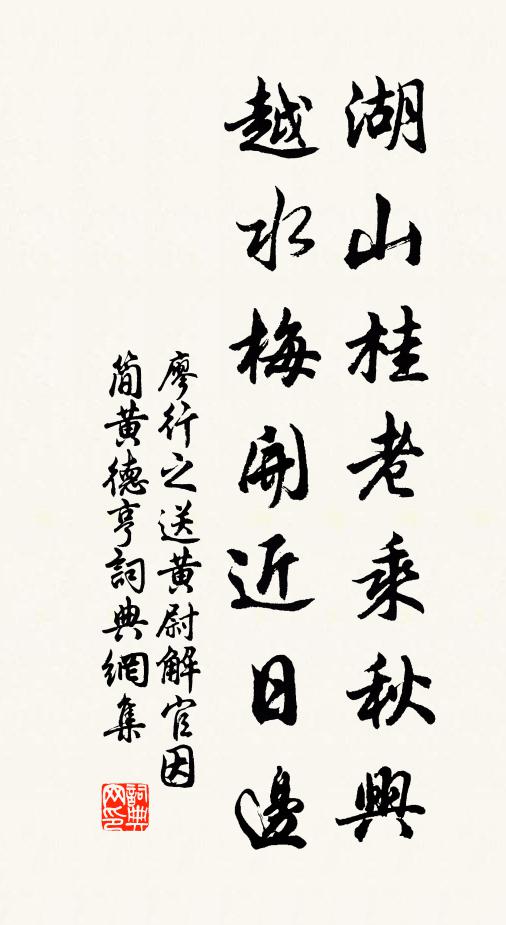 湖山桂老乘秋興
越水梅開近日邊
廖行之送黃尉解官因
簡黃德亨詞典網集
詞典
网印